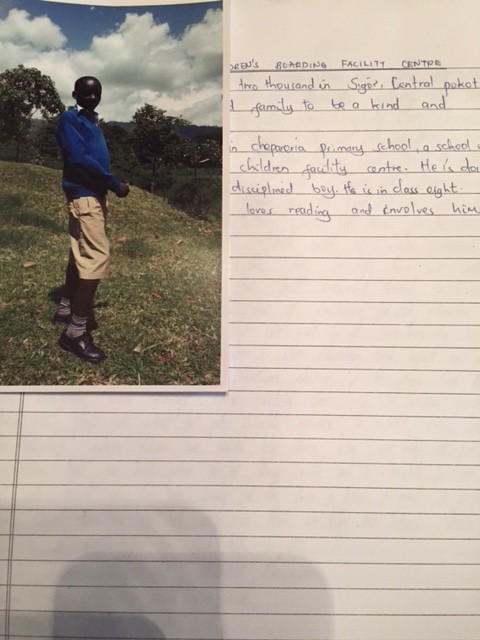 DREN'S BOARDING FACILITY CENTRE
two thousand in Sigor, Central pokot
family to be a kind and
in chepareria primary school, a school
children facility centre. He is
disciplined boy. He is in class eight.
loves reading and involves him